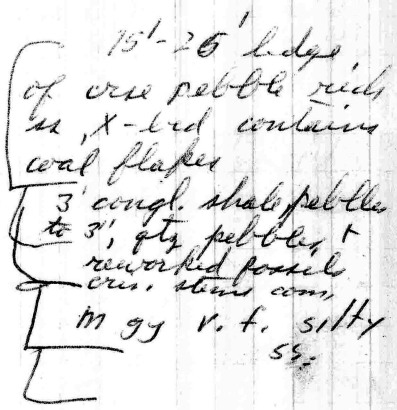 15'-25' ledge
of crse pebble rich
ss, X-bd contains
coal flakes
3' congl. shale pebbles
to 3", qtz pebbles, +
reworked fossils
crin. stems com.
m gy v. f. silty
ss.